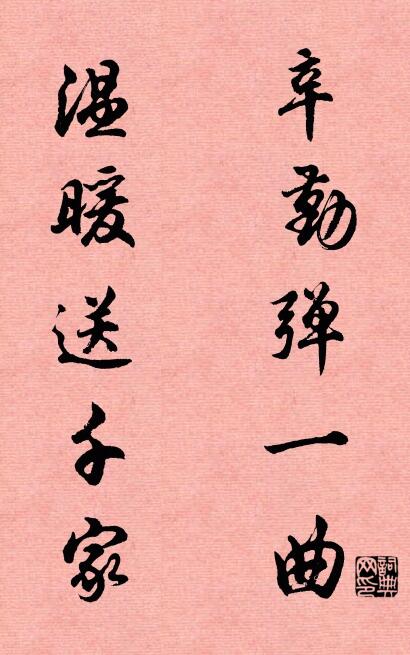 辛勤弹一曲
温暖送千家
詞典网印